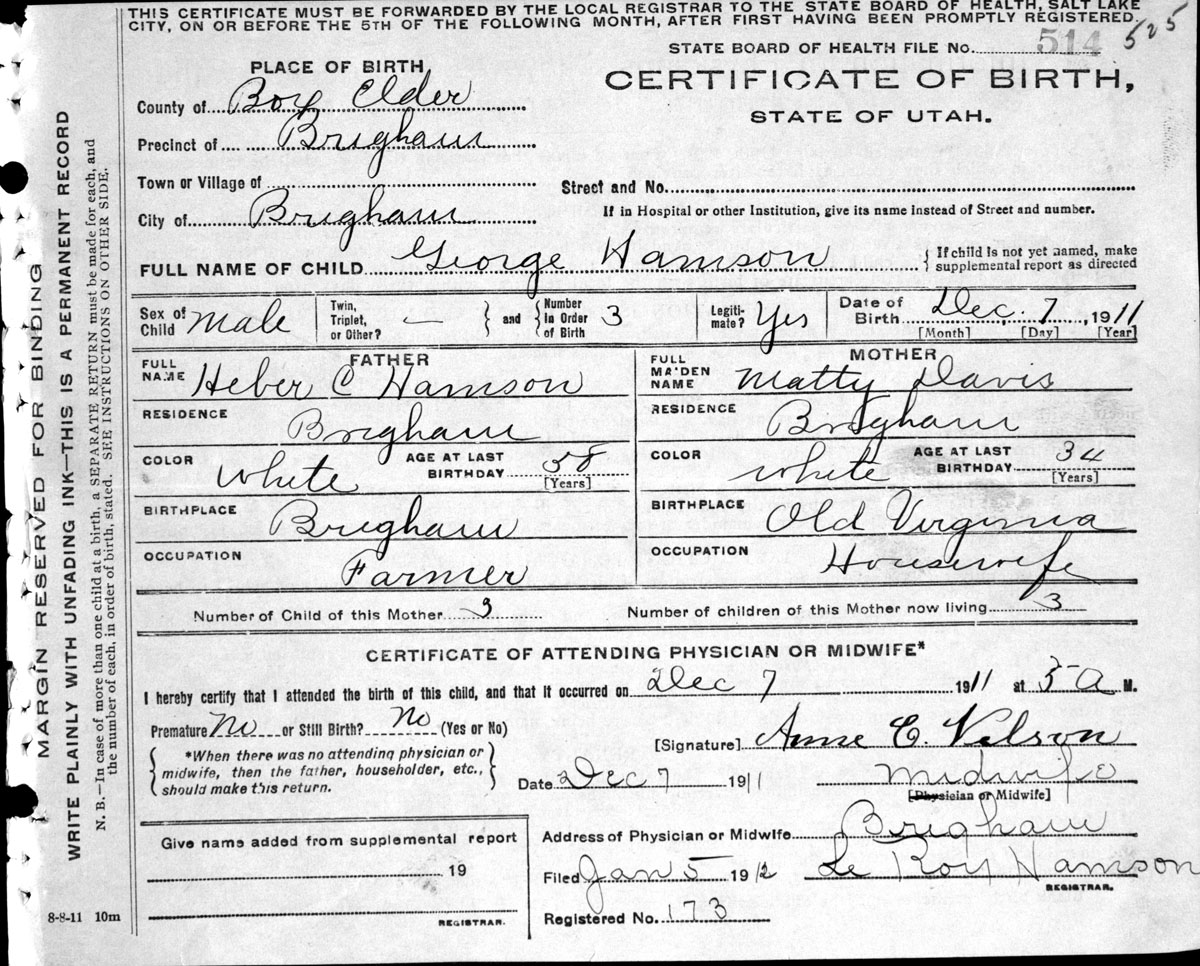 THIS CERTIFICATE MUST BE FORWARDED BY THE LOCAL REGISTRAR TO THE STATE BOARD OF HEALTH, SALT LAKE
CITY, ON OR BEFORE THE 5TH OF THE FOLLOWING MONTH, AFTER FIRST HAVING BEEN PROMPTLY REGISTERED.
STATE BOARD OF HEALTH FILE No. 514 525
PLACE OF BIRTH
CERTIFICATE OF BIRTH,
STATE OF UTAH.
County of Box Elder
Precinct of Brigham
Town or Village of
Street and No.
City of Brigham
If in Hospital or other Institution, give its name instead of Street and number.
FULL NAME OF CHILD George Hamson { If child is not yet named, make supplemental report as directed
Sex of Child Male
Twin, Triplet, or Other? — } and { Number In Order of Birth 3
Legiti-mate? Yes
Date of Birth Dec, 7, 1911
[Month] [Day] [Year]
FATHER
FULL NAME Heber C Hamson
RESIDENCE Brigham
COLOR White AGE AT LAST BIRTHDAY 38 [Years]
BIRTHPLACE Brigham
OCCUPATION Farmer
MOTHER
FULL MAIDEN NAME Matty Davis
RESIDENCE Brigham
COLOR White AGE AT LAST BIRTHDAY 34 [Years]
BIRTHPLACE Old Virginia
OCCUPATION Housewife
Number of Child of this Mother 3 Number of children of this Mother now living 3
CERTIFICATE OF ATTENDING PHYSICIAN OR MIDWIFE*
I hereby certify that I attended the birth of this child, and that it occurred on Dec 7 1911 at 5 A M.
Premature No or Still Birth? No (Yes or No)
{ *When there was no attending physician or midwife, then the father, householder, etc., should make this return. }
[Signature] Anne E. Nelson
Date Dec 7 1911
Midwife
[Physician or Midwife]
Give name added from supplemental report
19
REGISTRAR.
Address of Physician or Midwife Brigham
Filed Jan 5 1912 Le Roy Hamson
REGISTRAR.
Registered No. 173
8-8-11 10m
MARGIN RESERVED FOR BINDING
WRITE PLAINLY WITH UNFADING INK—THIS IS A PERMANENT RECORD
N. B.—In case of more than one child at a birth, a SEPARATE RETURN must be made for each, and
the number of each, in order of birth, stated. SEE INSTRUCTIONS ON OTHER SIDE.